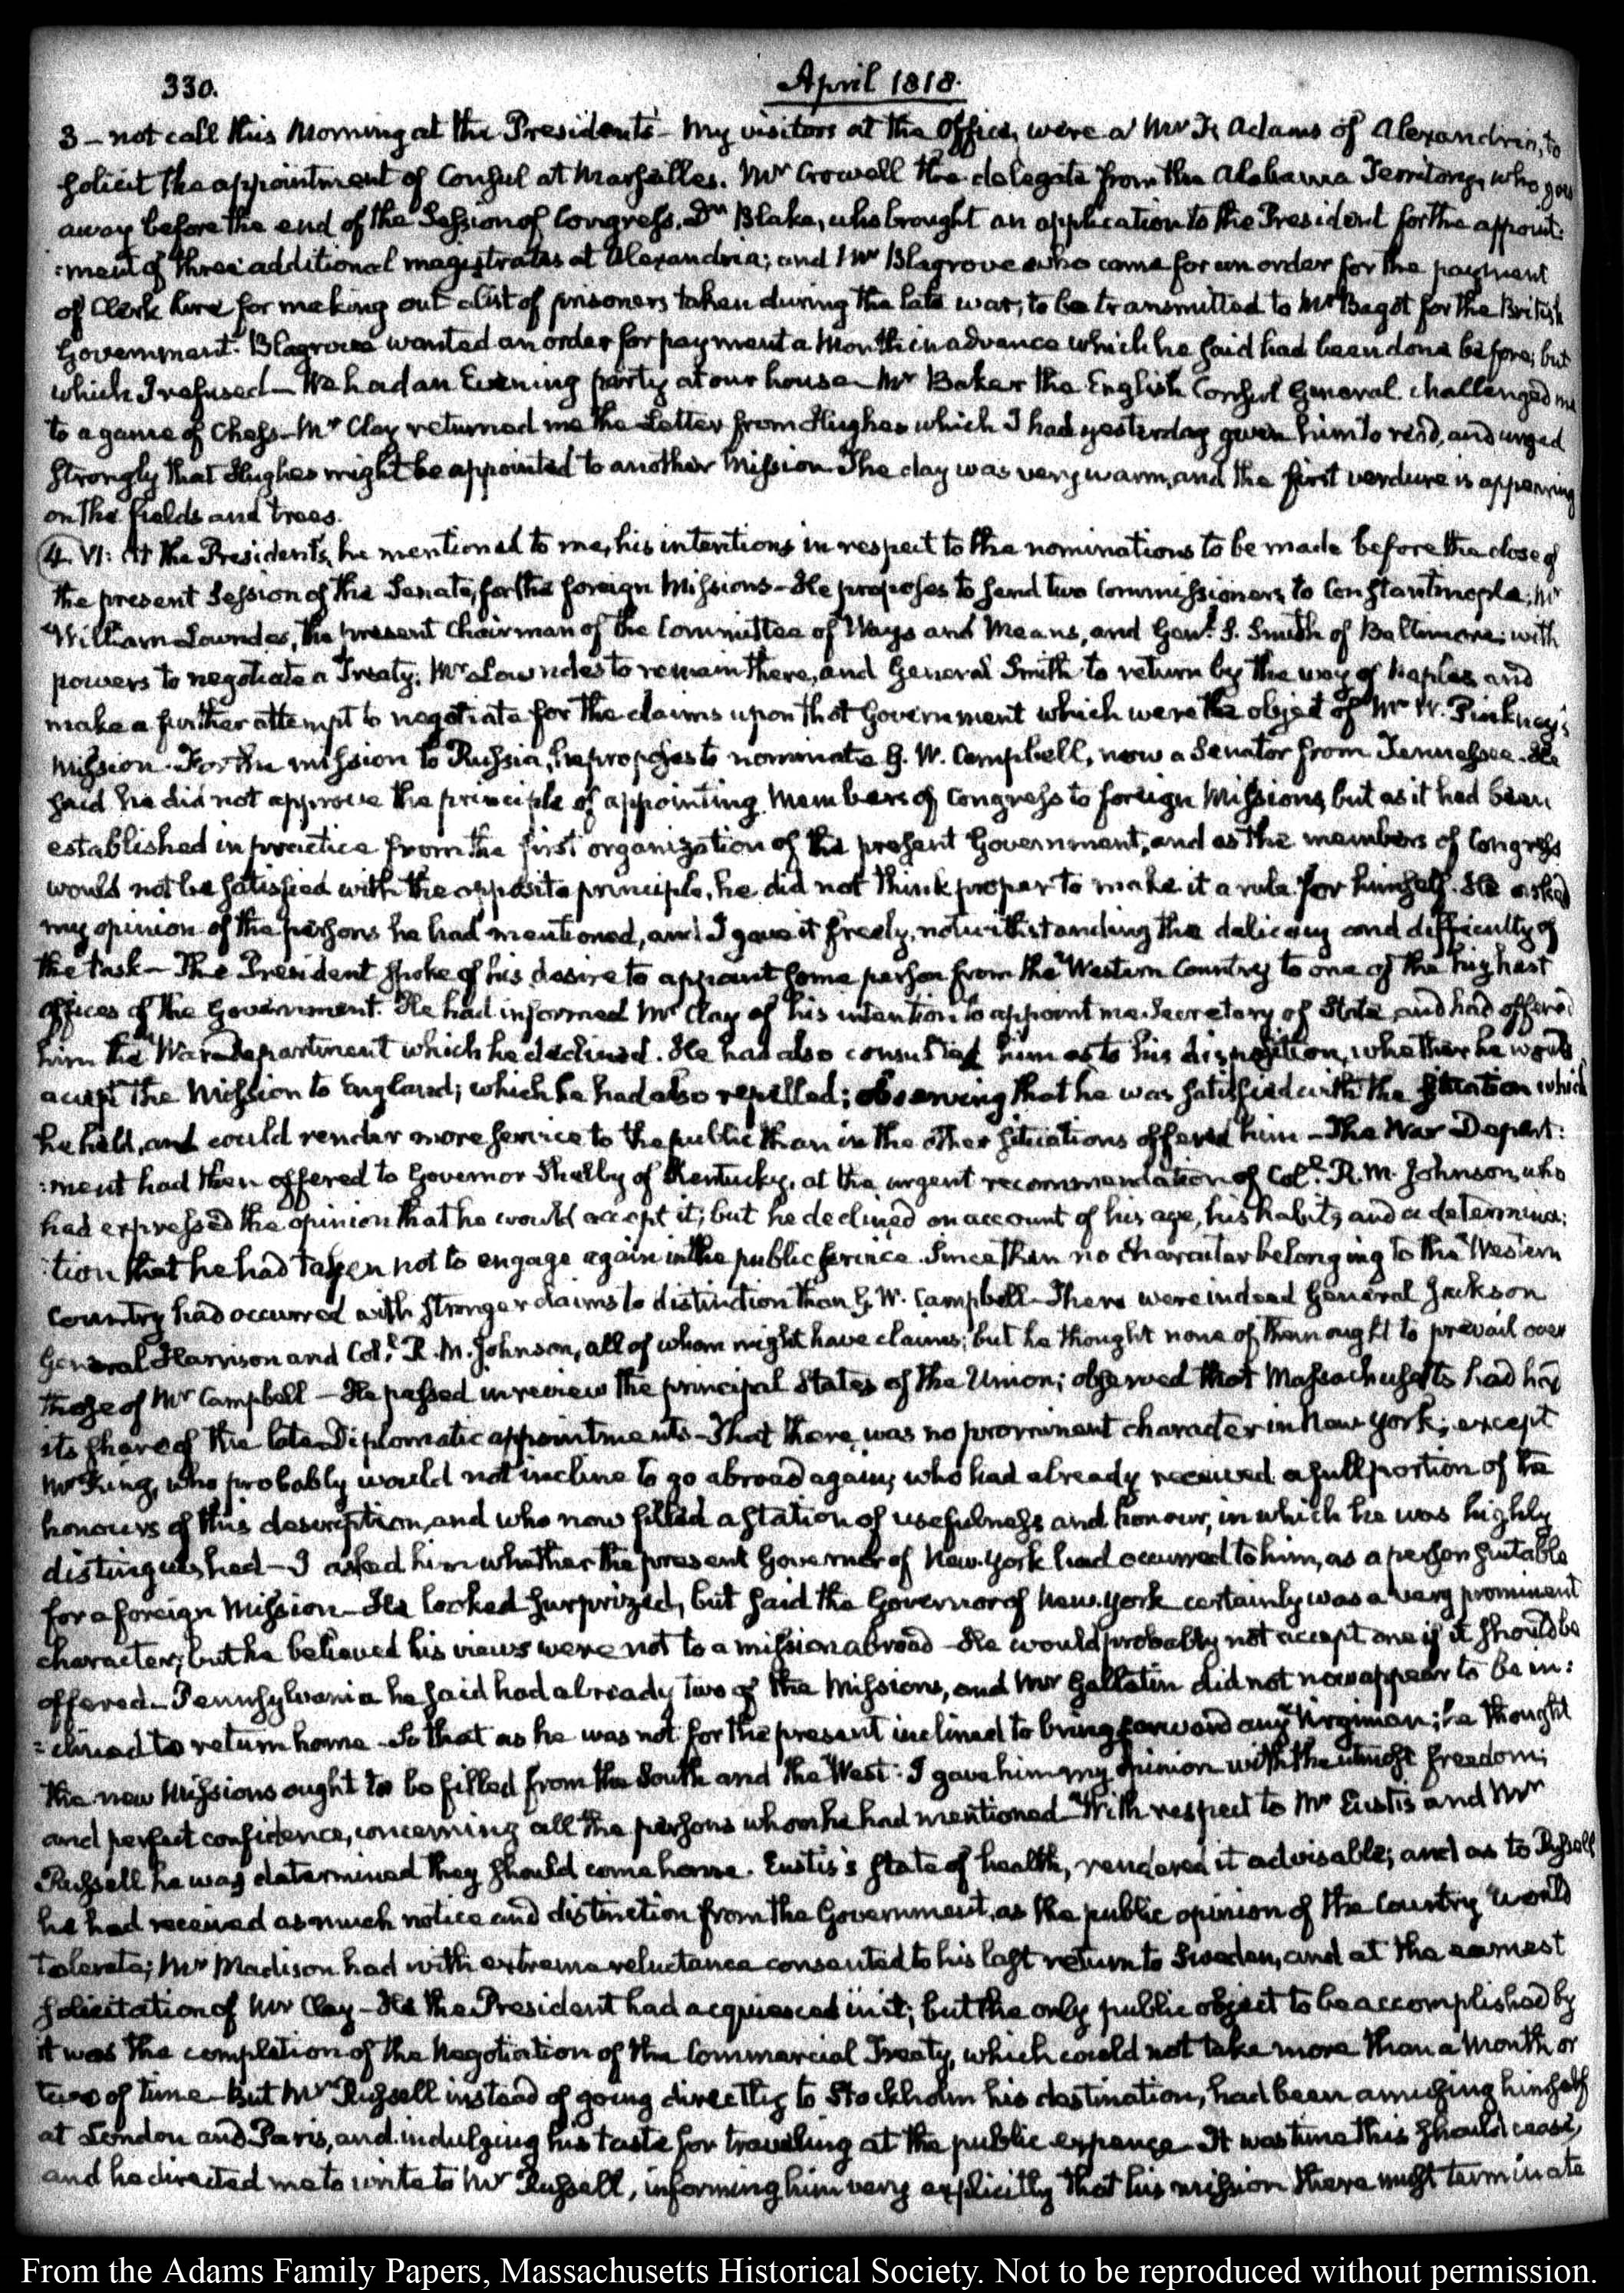 330.
April 1818.
3 – not call this Morning at the Presidents – My visitors at the Office, were a Mr Adams of Alexandria, to
solicit the appointment of Consul at Marseilles. Mr Crowell the delegate from the Alabama Territory, who goes
away before the end of the Session of Congress. Dr Blake, who brought an application to the President for the appoint:
:ment of three additional magistrates at Alexandria; and Mr Blagrove who came for an order for the payment
of Clerk hire for making out a list of prisoners taken during the late war, to be transmitted to Mr Bagot for the British
Government. Blagrove wanted an order for payment a Month in advance which he said had been done before; but
which I refused – We had an Evening party at our house – Mr Baker the English Consul General challenged me
to a game of Chess – Mr Clay returned me the Letter from Hughes which I had yesterday given him to read, and urged
strongly that Hughes might be appointed to another Mission. The day was very warm, and the first verdure is appearing
on the fields and trees.
4. VI: At the Presidents, he mentioned to me, his intentions in respect to the nominations to be made before the close of
the present Session of the Senate, for the foreign Missions – He proposes to send two Commissioners to Constantinople; Mr
William Lowndes, the present Chairman of the Committee of Ways and Means, and Genl. S. Smith of Baltimore; with
powers to negotiate a Treaty. Mr Lowndes to remain there, and General Smith to return by the way of Naples and
make a further attempt to negotiate for the claims upon that Government which were the object of Mr W. Pinkney's
Mission. For the mission to Russia, he proposes to nominate G. W. Campbell, now a Senator from Tennessee. He
said he did not approve the principle of appointing Members of Congress to foreign Missions, but as it had been
established in practice from the first organization of the present Government, and as the members of Congress
would not be satisfied with the opposite principle, he did not think proper to make it a rule for himself. He asked
my opinion of the persons he had mentioned, and I gave it freely, notwithstanding the delicacy and difficulty of
the task – The President spoke of his desire to appoint some person from the Western Country to one of the highest
offices of the Government. He had informed Mr Clay of his intention to appoint me Secretary of State, and had offered
him the War Department which he declined. He had also consulted him as to his disposition, whether he would
accept the Mission to England; which he had also repelled; observing that he was satisfied with the situation which
he held, and could render more service to the public than in the other situations offered him – The War Depart:
:ment had then offered to Governor Shelby of Kentucky, at the urgent recommendation of Coll. R. M. Johnson, who
had expressed the opinion that he would accept it; but he declined on account of his age, his habits and a determina:
:tion that he had taken not to engage again in the public service. Since then no character belonging to the Western
Country had occurred with stronger claims to distinction than G. W. Campbell – There were indeed General Jackson
General Harrison and Coll. R. M. Johnson, all of whom might have claims; but he thought none of them ought to prevail over
those of Mr Campbell – He passed in review the principal States of the Union; observed that Massachusetts had had
its share of the late Diplomatic appointments – That there was no prominent character in New York; except
Mr King, who probably would not incline to go abroad again; who had already received a full portion of the
honours of this description, and who now filled a station of usefulness and honour, in which he was highly
distinguished – I asked him whether the present Governor of New-York had occurred to him, as a person suitable
for a foreign Mission – He looked surprized, but said the Governor of New-York certainly was a very prominent
character; but he believed his views were not to a mission abroad – He would probably not accept one if it should be
offered – Pennsylvania he said had already two of the Missions, and Mr Gallatin did not now appear to be in:
:clined to return home – So that as he was not for the present inclined to bring forward any Virginian; he thought
the new Missions ought to be filled from the South and the West. I gave him my opinion with the utmost freedom;
and perfect confidence, concerning all the persons whom he had mentioned – With respect to Mr Eustis and Mr
Russell he was determined they should come home. Eustis's state of health, rendered it advisable; and as to Russell
he had received as much notice and distinction from the Government, as the public opinion of the Country would
tolerate; Mr Madison had with extreme reluctance consented to his last return to Sweden, and at the earnest
solicitation of Mr Clay – He the President had acquiesced in it; but the only public object to be accomplished by
it was the completion of the Negotiation of the Commercial Treaty, which could not take more than a Month or
two of time – But Mr Russell instead of going directly to Stockholm his destination, had been amusing himself
at London and Paris, and indulging his taste for traveling at the public expence – It was time this should cease;
and he directed me to write to Mr Russell, informing him very explicitly that his mission there must terminate
From the Adams Family Papers, Massachusetts Historical Society. Not to be reproduced without permission.